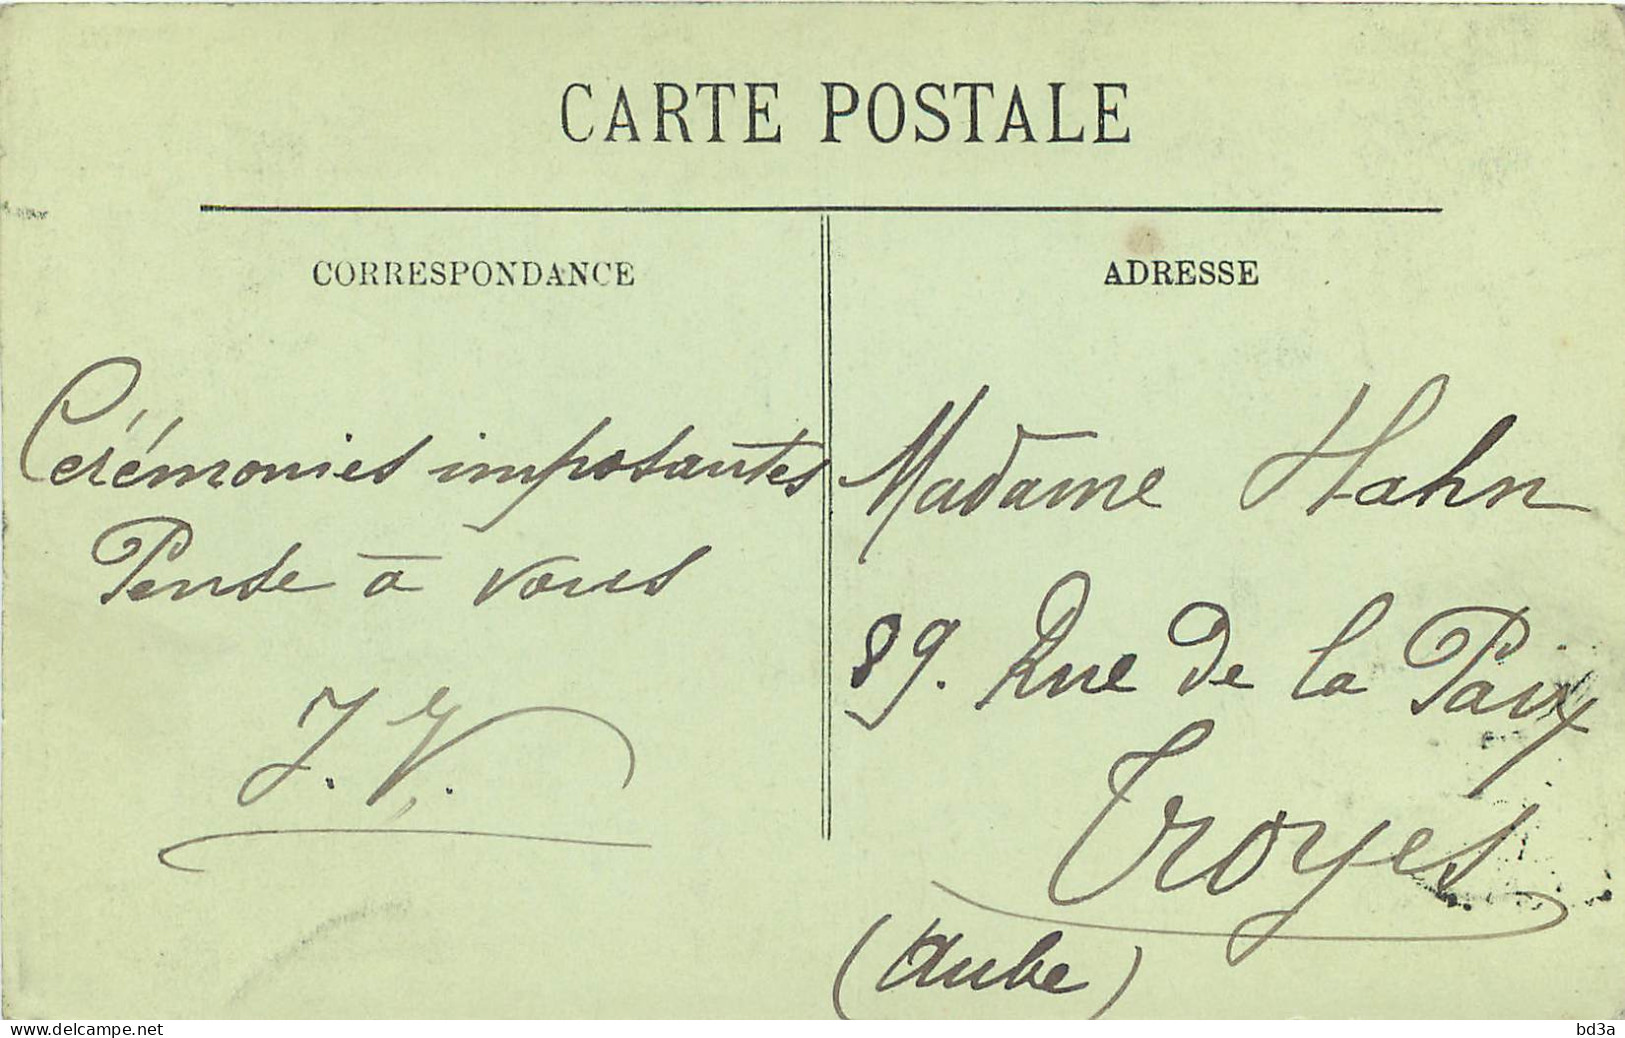 CARTE POSTALE
CORRESPONDANCE
Cérémonies imposantes
Pense à vous
J. V.
ADRESSE
Madame Hahn
89. Rue de la Paix
Troyes
(Aube)
www.delcampe.net
bd3a